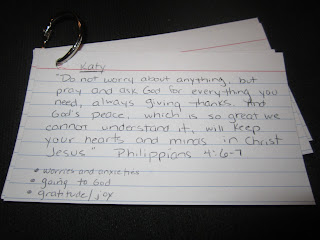 Katy
"Do not worry about anything, but
pray and ask God for everything you
need, always giving thanks. And
God's peace, which is so great we
cannot understand it, will keep
your hearts and minds in Christ
Jesus" Philippians 4:6-7
• worries and anxieties
• going to God
• gratitude/joy